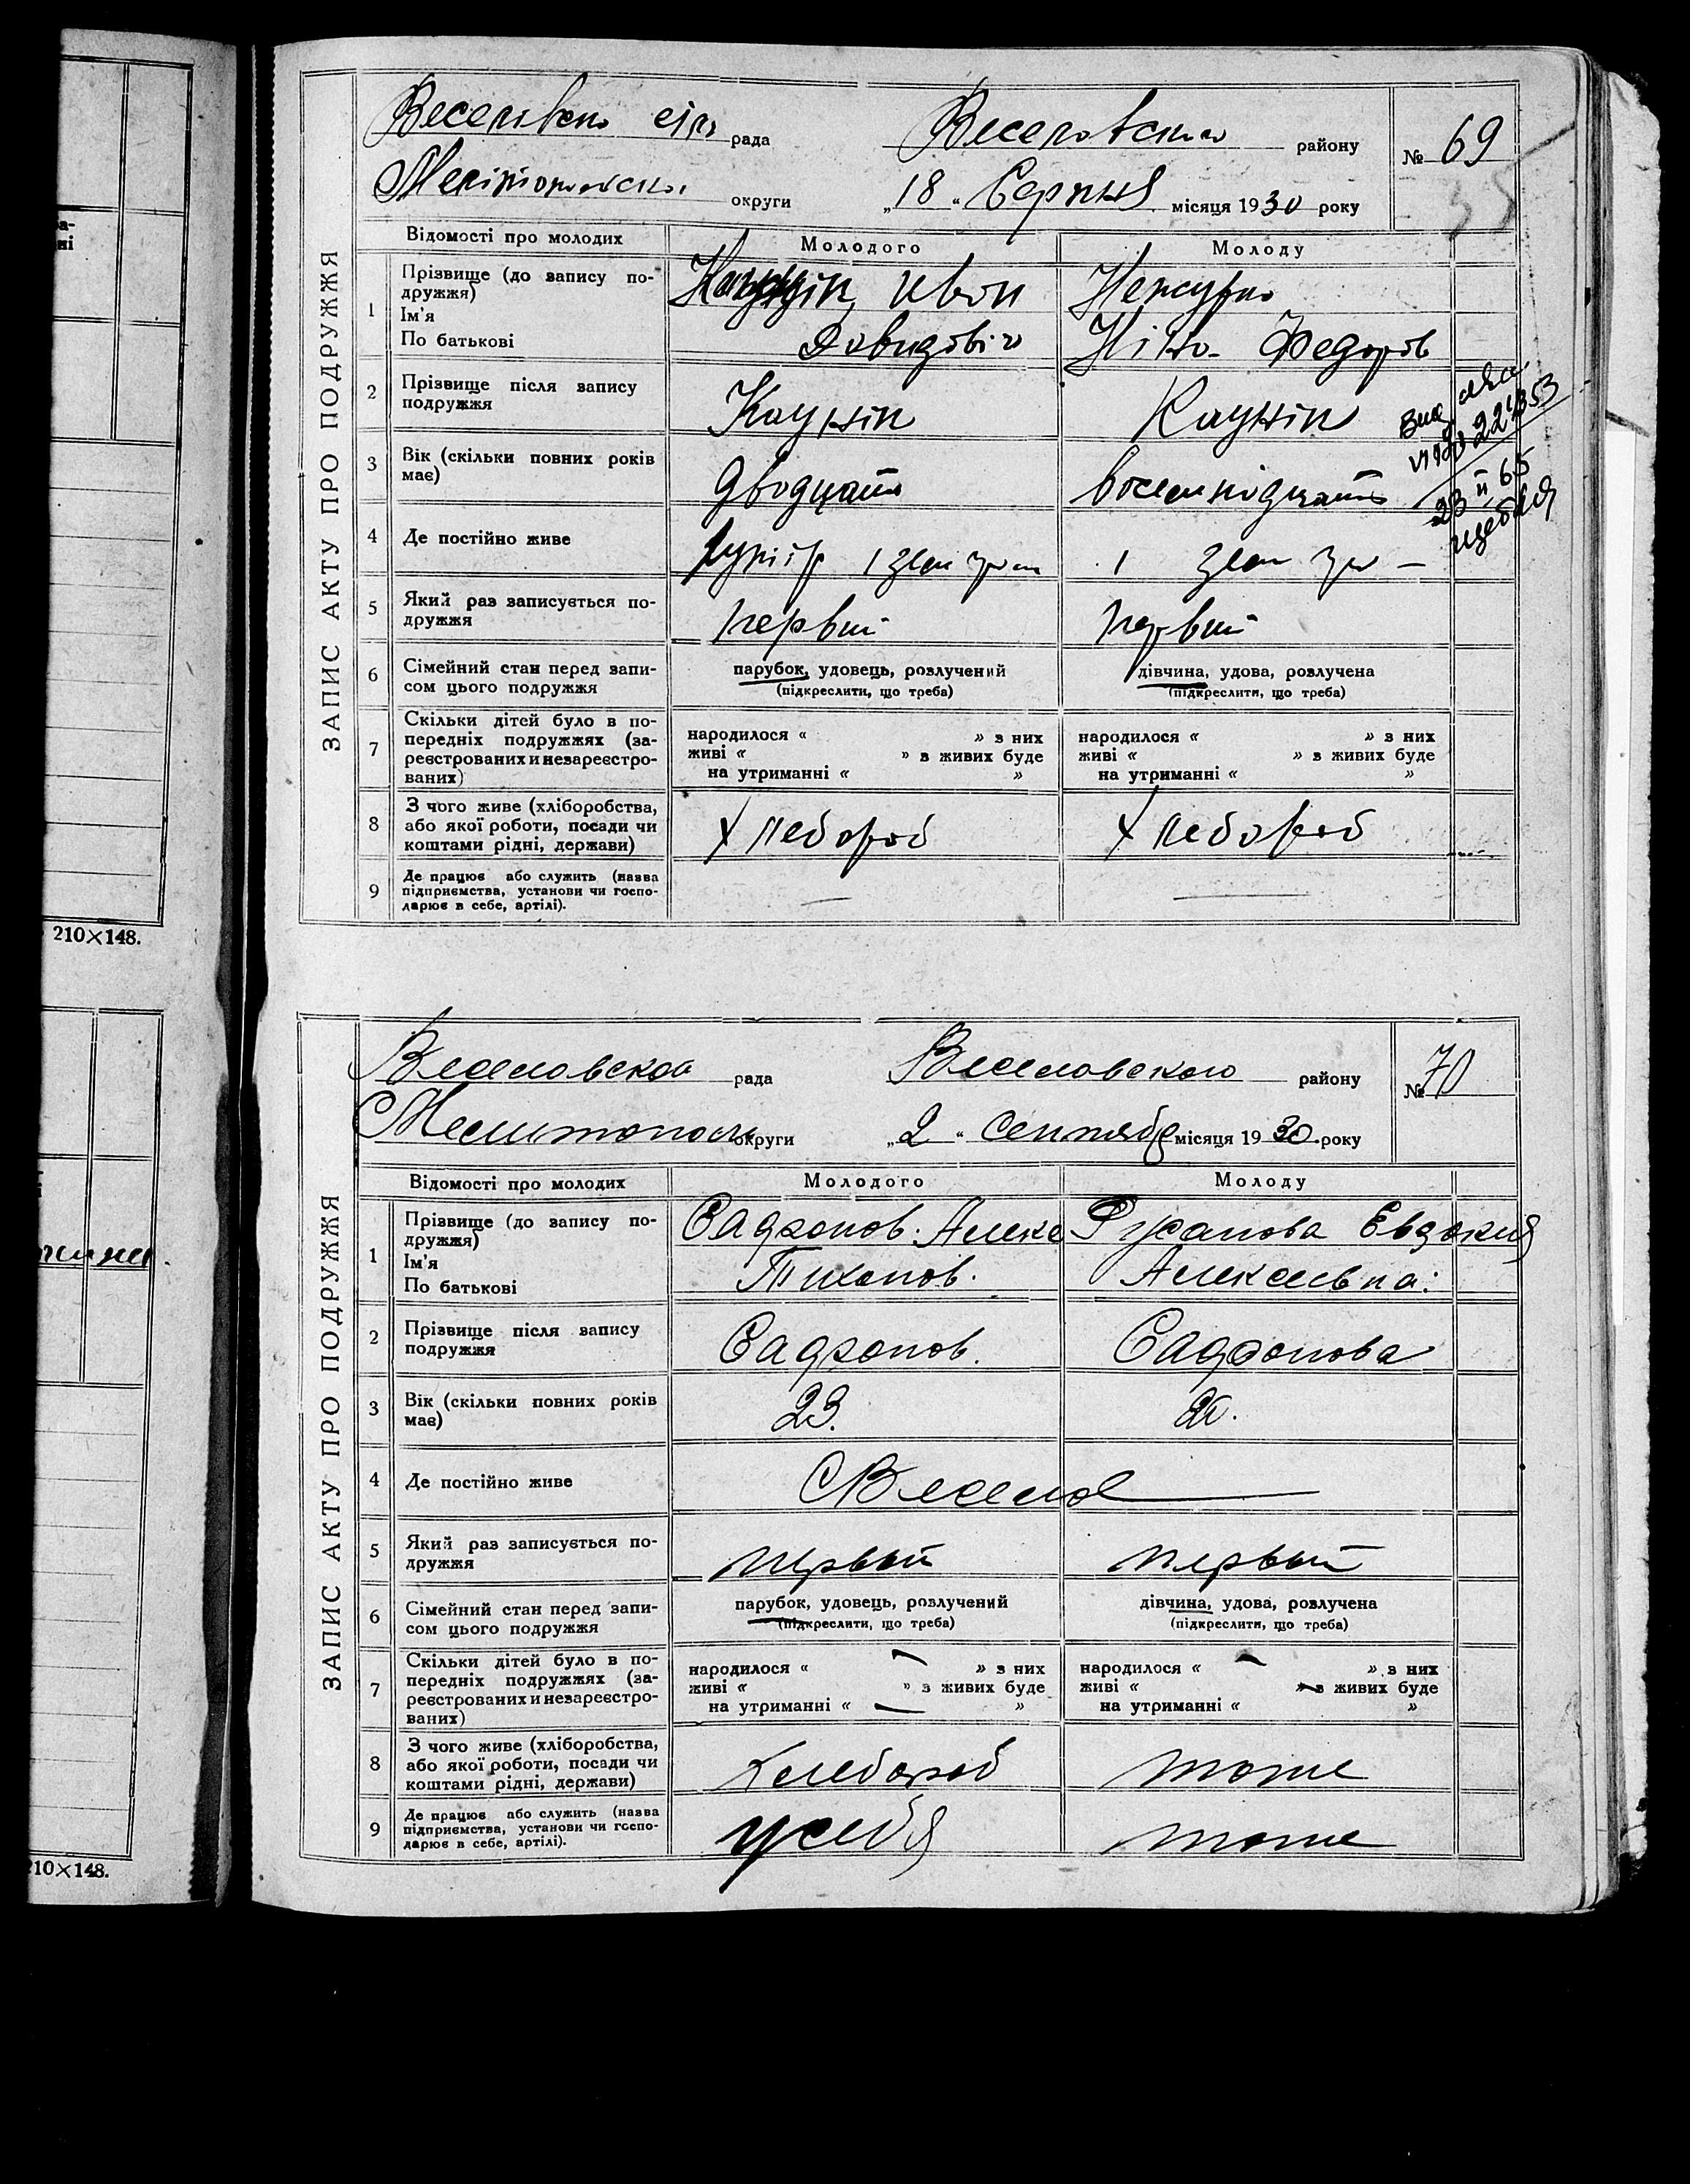 ЗАПИС АКТУ ПРО ПОДРУЖЖЯ
рада
району
№ 69
округи
„18“ Серпня місяця 1930 року
Відомості про молодих
Молодого
Молоду
1
Прізвище (до запису по-
дружжя)
Ім'я
По батькові
Іван
Давидовіч
Федоров
2
Прізвище після запису
подружжя
Каунін
Каунін
3
Вік (скільки повних років
має)
4
Де постійно живе
1
5
Який раз записується по-
дружжя
первий
первий
6
Сімейний стан перед запи-
сом цього подружжя
парубок, удовець, розлучений
(підкреслити, що треба)
дівчина, удова, розлучена
(підкреслити, що треба)
7
Скільки дітей було в по-
передніх подружжях (за-
реєстрованих и незареєстро-
ваних)
народилося « » з них
живі « » з живих буде
на утриманні « »
народилося « » з них
живі « » з живих буде
на утриманні « »
8
З чого живе (хліборобства,
або якої роботи, посади чи
коштами рідні, держави)
Хлебороб
Хлебороб
9
Де працює або служить (назва
підприємства, установи чи госпо-
дарює в себе, артілі).
210×148.
ЗАПИС АКТУ ПРО ПОДРУЖЖЯ
Веселовской рада
Веселовского району
№ 70
Мелитополь округи
„2“ Сентября місяця 1930 року
Відомості про молодих
Молодого
Молоду
1
Прізвище (до запису по-
дружжя)
Ім'я
По батькові
Сафронов Алекс
Тихонов.
Евдокия
Алексеевна
2
Прізвище після запису
подружжя
Сафронов.
Сафронова
3
Вік (скільки повних років
має)
23.
4
Де постійно живе
С Веселое
5
Який раз записується по-
дружжя
первый
первый
6
Сімейний стан перед запи-
сом цього подружжя
парубок, удовець, розлучений
(підкреслити, що треба)
дівчина, удова, розлучена
(підкреслити, що треба)
7
Скільки дітей було в по-
передніх подружжях (за-
реєстрованих и незареєстро-
ваних)
народилося « » з них
живі « » з живих буде
на утриманні « »
народилося « » з них
живі « » з живих буде
на утриманні « »
8
З чого живе (хліборобства,
або якої роботи, посади чи
коштами рідні, держави)
Хлебороб
тоже
9
Де працює або служить (назва
підприємства, установи чи госпо-
дарює в себе, артілі).
у себя
тоже
10×148.